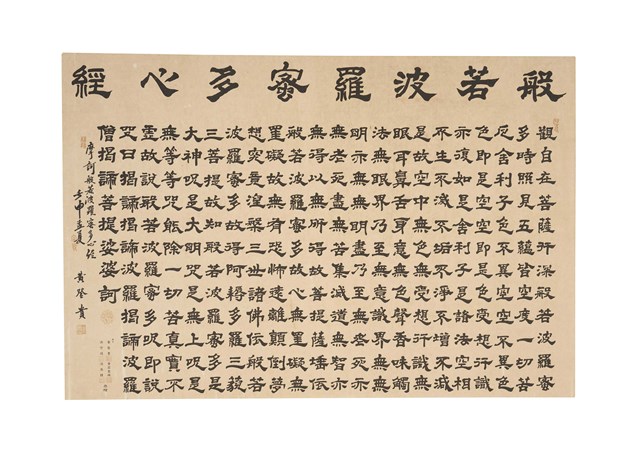 般若波羅蜜多心經
觀自在菩薩行深般若波羅蜜
多時照見五蘊皆空度一切苦
厄舍利子色不異空空不異色
色即是空空即是色受想行識
亦復如是舍利子是諸法空相
不生不滅不垢不淨不增不減
是故空中無色無受想行識無
眼耳鼻舌身意無色聲香味觸
法無眼界乃至無意識界無無
明亦無無明盡乃至無老死亦
無老死盡無苦集滅道無智亦
無得以無所得故菩提薩埵依
般若波羅蜜多故心無罣礙無
罣礙故無有恐怖遠離顛倒夢
想究竟涅槃三世諸佛依般若
波羅蜜多故得阿耨多羅三藐
三菩提故知般若波羅蜜多是
大神咒是大明咒是無上咒是
無等等咒能除一切苦真實不
虛故說般若波羅蜜多咒即說
咒曰揭諦揭諦波羅揭諦波羅
僧揭諦菩提娑婆訶
摩訶般若波羅蜜多心經
壬申孟夏 黃登貴